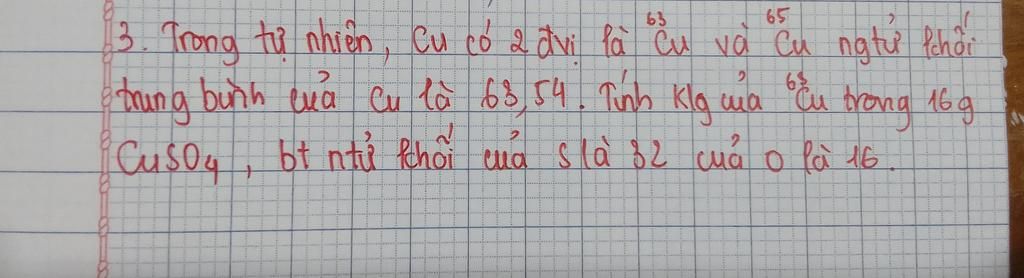 3. Trong tự nhiên, Cu có 2 đvị là ⁶³Cu và ⁶⁵Cu ngtử khối
trung bình của Cu là 63,54. Tính klg của ⁶³Cu trong 16g
CuSO₄, bt ntử khối của S là 32 của O là 16.